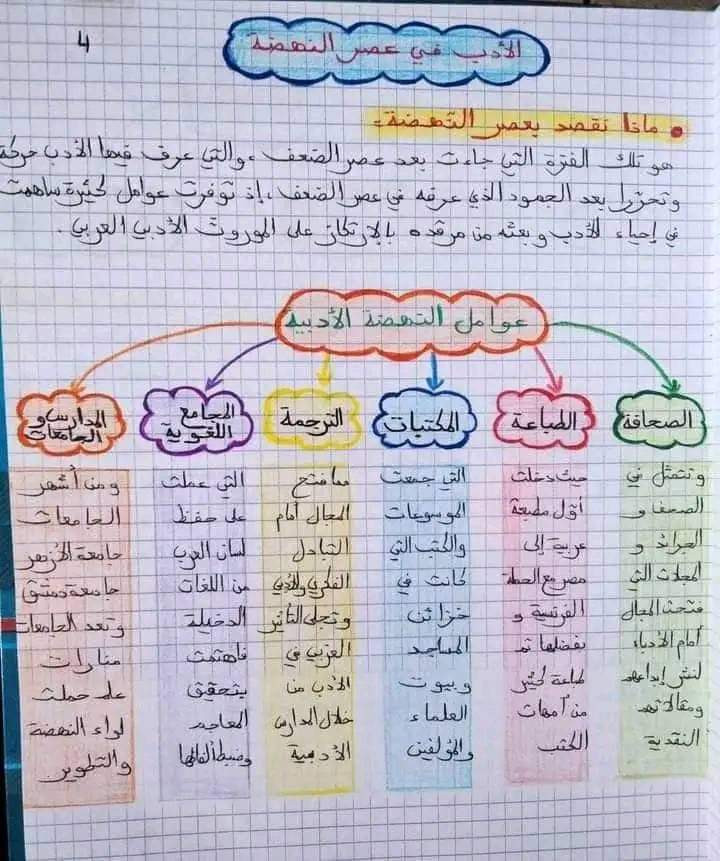 4
الأدب في عصر النهضة
• ماذا نقصد بعصر النهضة:
هو تلك الفترة التي جاءت بعد عصر الضعف، والتي عرف فيها الأدب حركة
وتحررا بعد الجمود الذي عرفه في عصر الضعف، إذ توفرت عوامل كثيرة ساهمت
في إحياء الأدب وبعثه من مرقده بالإرتكاز على الموروث الأدبي العربي.
عوامل النهضة الأدبية
الصحافة
وتتمثل في
الصحف و
الجرائد و
المجلات التي
فتحت المجال
أمام الأدباء
لنشر إبداعهم
ومقالاتهم
النقدية
الطباعة
حيث دخلت
أول مطبعة
عربية إلى
مصر مع الحملة
الفرنسية و
بفضلها تم
طباعة كثير
من أمهات
الكتب
المكتبات
التي جمعت
الموسوعات
والكتب التي
كانت في
خزائن
المساجد
وبيوت
العلماء
والمؤلفين
الترجمة
مما فتح
المجال أمام
التبادل
الفكري والأدبي
وتجلى التأثير
الغربي في
الأدب من
خلال المدارس
الأدبية
المجامع
اللغوية
التي عملت
على حفظ
لسان العرب
من اللغات
الدخيلة
فاهتمت
بتحقيق
المعاجم
وضبط ألفاظها
المدارس و
الجامعات
ومن أشهر
الجامعات
جامعة الأزهر
جامعة دمشق
وتعد الجامعات
منارات
علم حملت
لواء النهضة
والتطوير